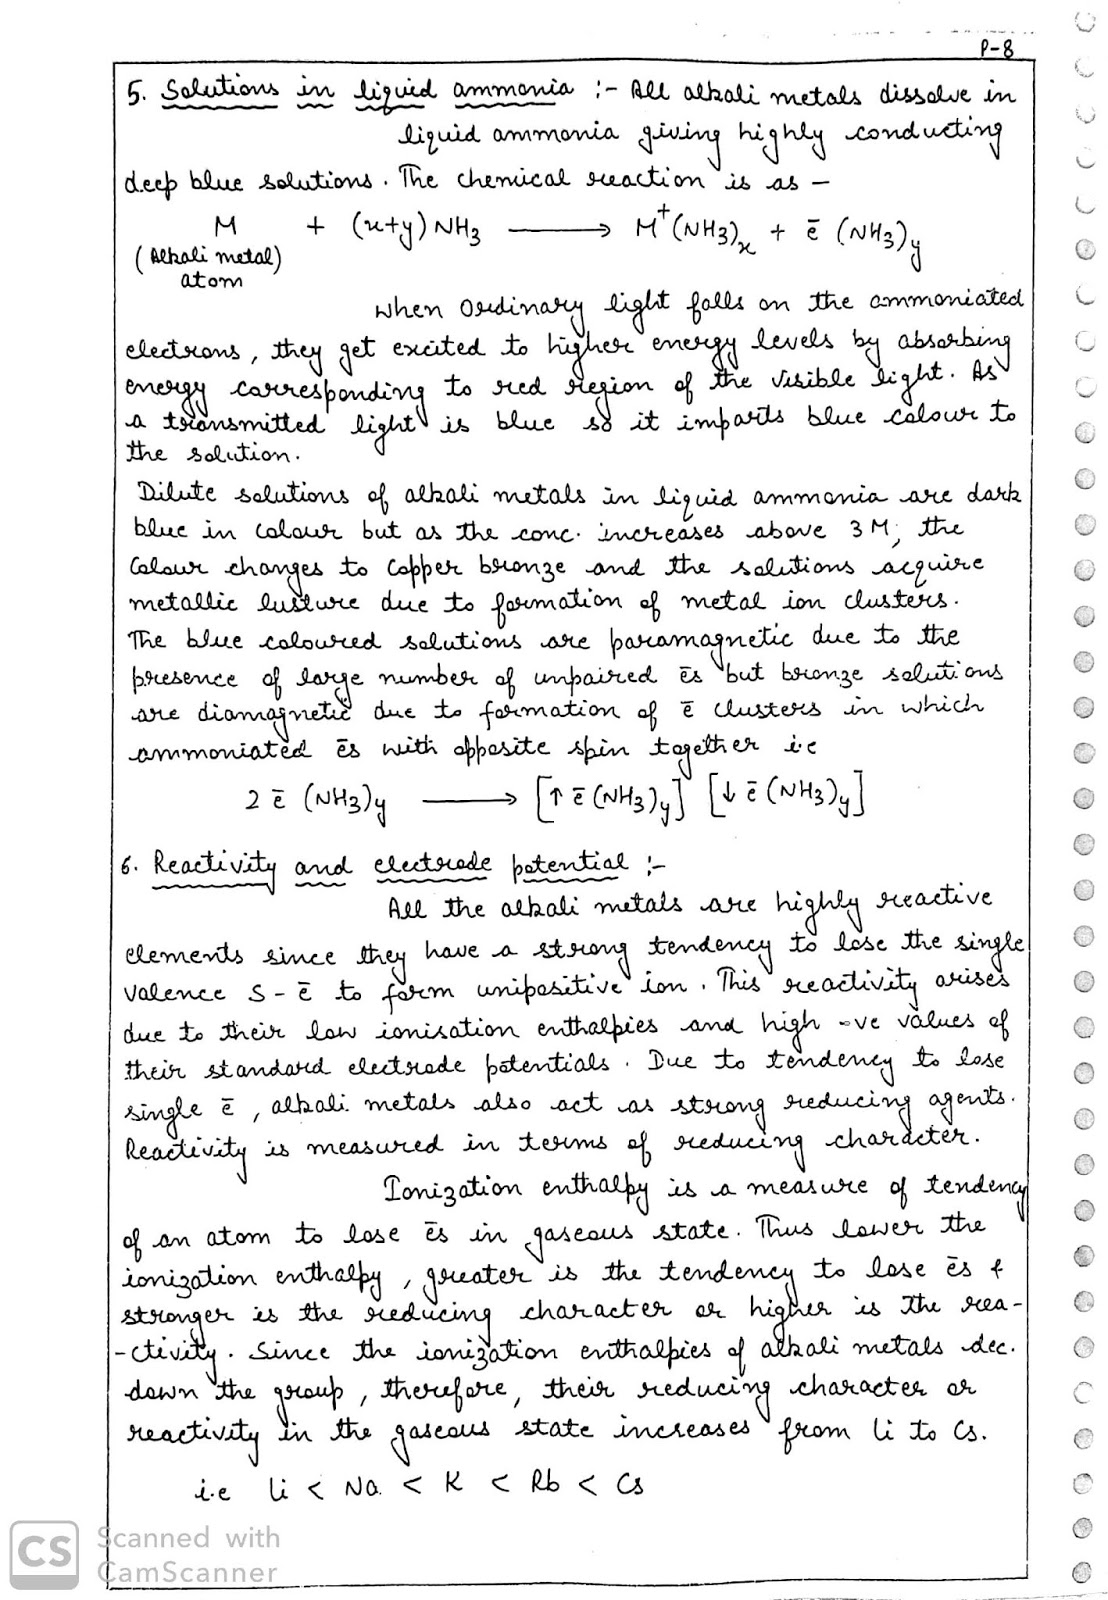 P-8
5. Solutions in liquid ammonia :- All alkali metals dissolve in
liquid ammonia giving highly conducting
deep blue solutions. The chemical reaction is as –
M + (x+y) NH3 ⟶ M⁺(NH3)x + ē (NH3)y
(Alkali metal)
atom
When ordinary light falls on the ammoniated
electrons, they get excited to higher energy levels by absorbing
energy corresponding to red region of the visible light. As
a transmitted light is blue so it imparts blue colour to
the solution.
Dilute solutions of alkali metals in liquid ammonia are dark
blue in colour but as the conc. increases above 3 M, the
colour changes to copper bronze and the solutions acquire
metallic lusture due to formation of metal ion clusters.
The blue coloured solutions are paramagnetic due to the
presence of large number of unpaired ēs but bronze solutions
are diamagnetic due to formation of ē clusters in which
ammoniated ēs with opposite spin together i.e
2 ē (NH3)y ⟶ [↑ ē (NH3)y] [↓ ē (NH3)y]
6. Reactivity and electrode potential :-
All the alkali metals are highly reactive
elements since they have a strong tendency to lose the single
valence s - ē to form unipositive ion. This reactivity arises
due to their low ionisation enthalpies and high -ve values of
their standard electrode potentials. Due to tendency to lose
single ē, alkali metals also act as strong reducing agents.
Reactivity is measured in terms of reducing character.
Ionization enthalpy is a measure of tendency
of an atom to lose ēs in gaseous state. Thus lower the
ionization enthalpy, greater is the tendency to lose ēs &
stronger is the reducing character or higher is the rea-
-ctivity. Since the ionization enthalpies of alkali metals dec.
down the group, therefore, their reducing character or
reactivity in the gaseous state increases from Li to Cs.
i.e Li < Na < K < Rb < Cs
CS Scanned with
CamScanner